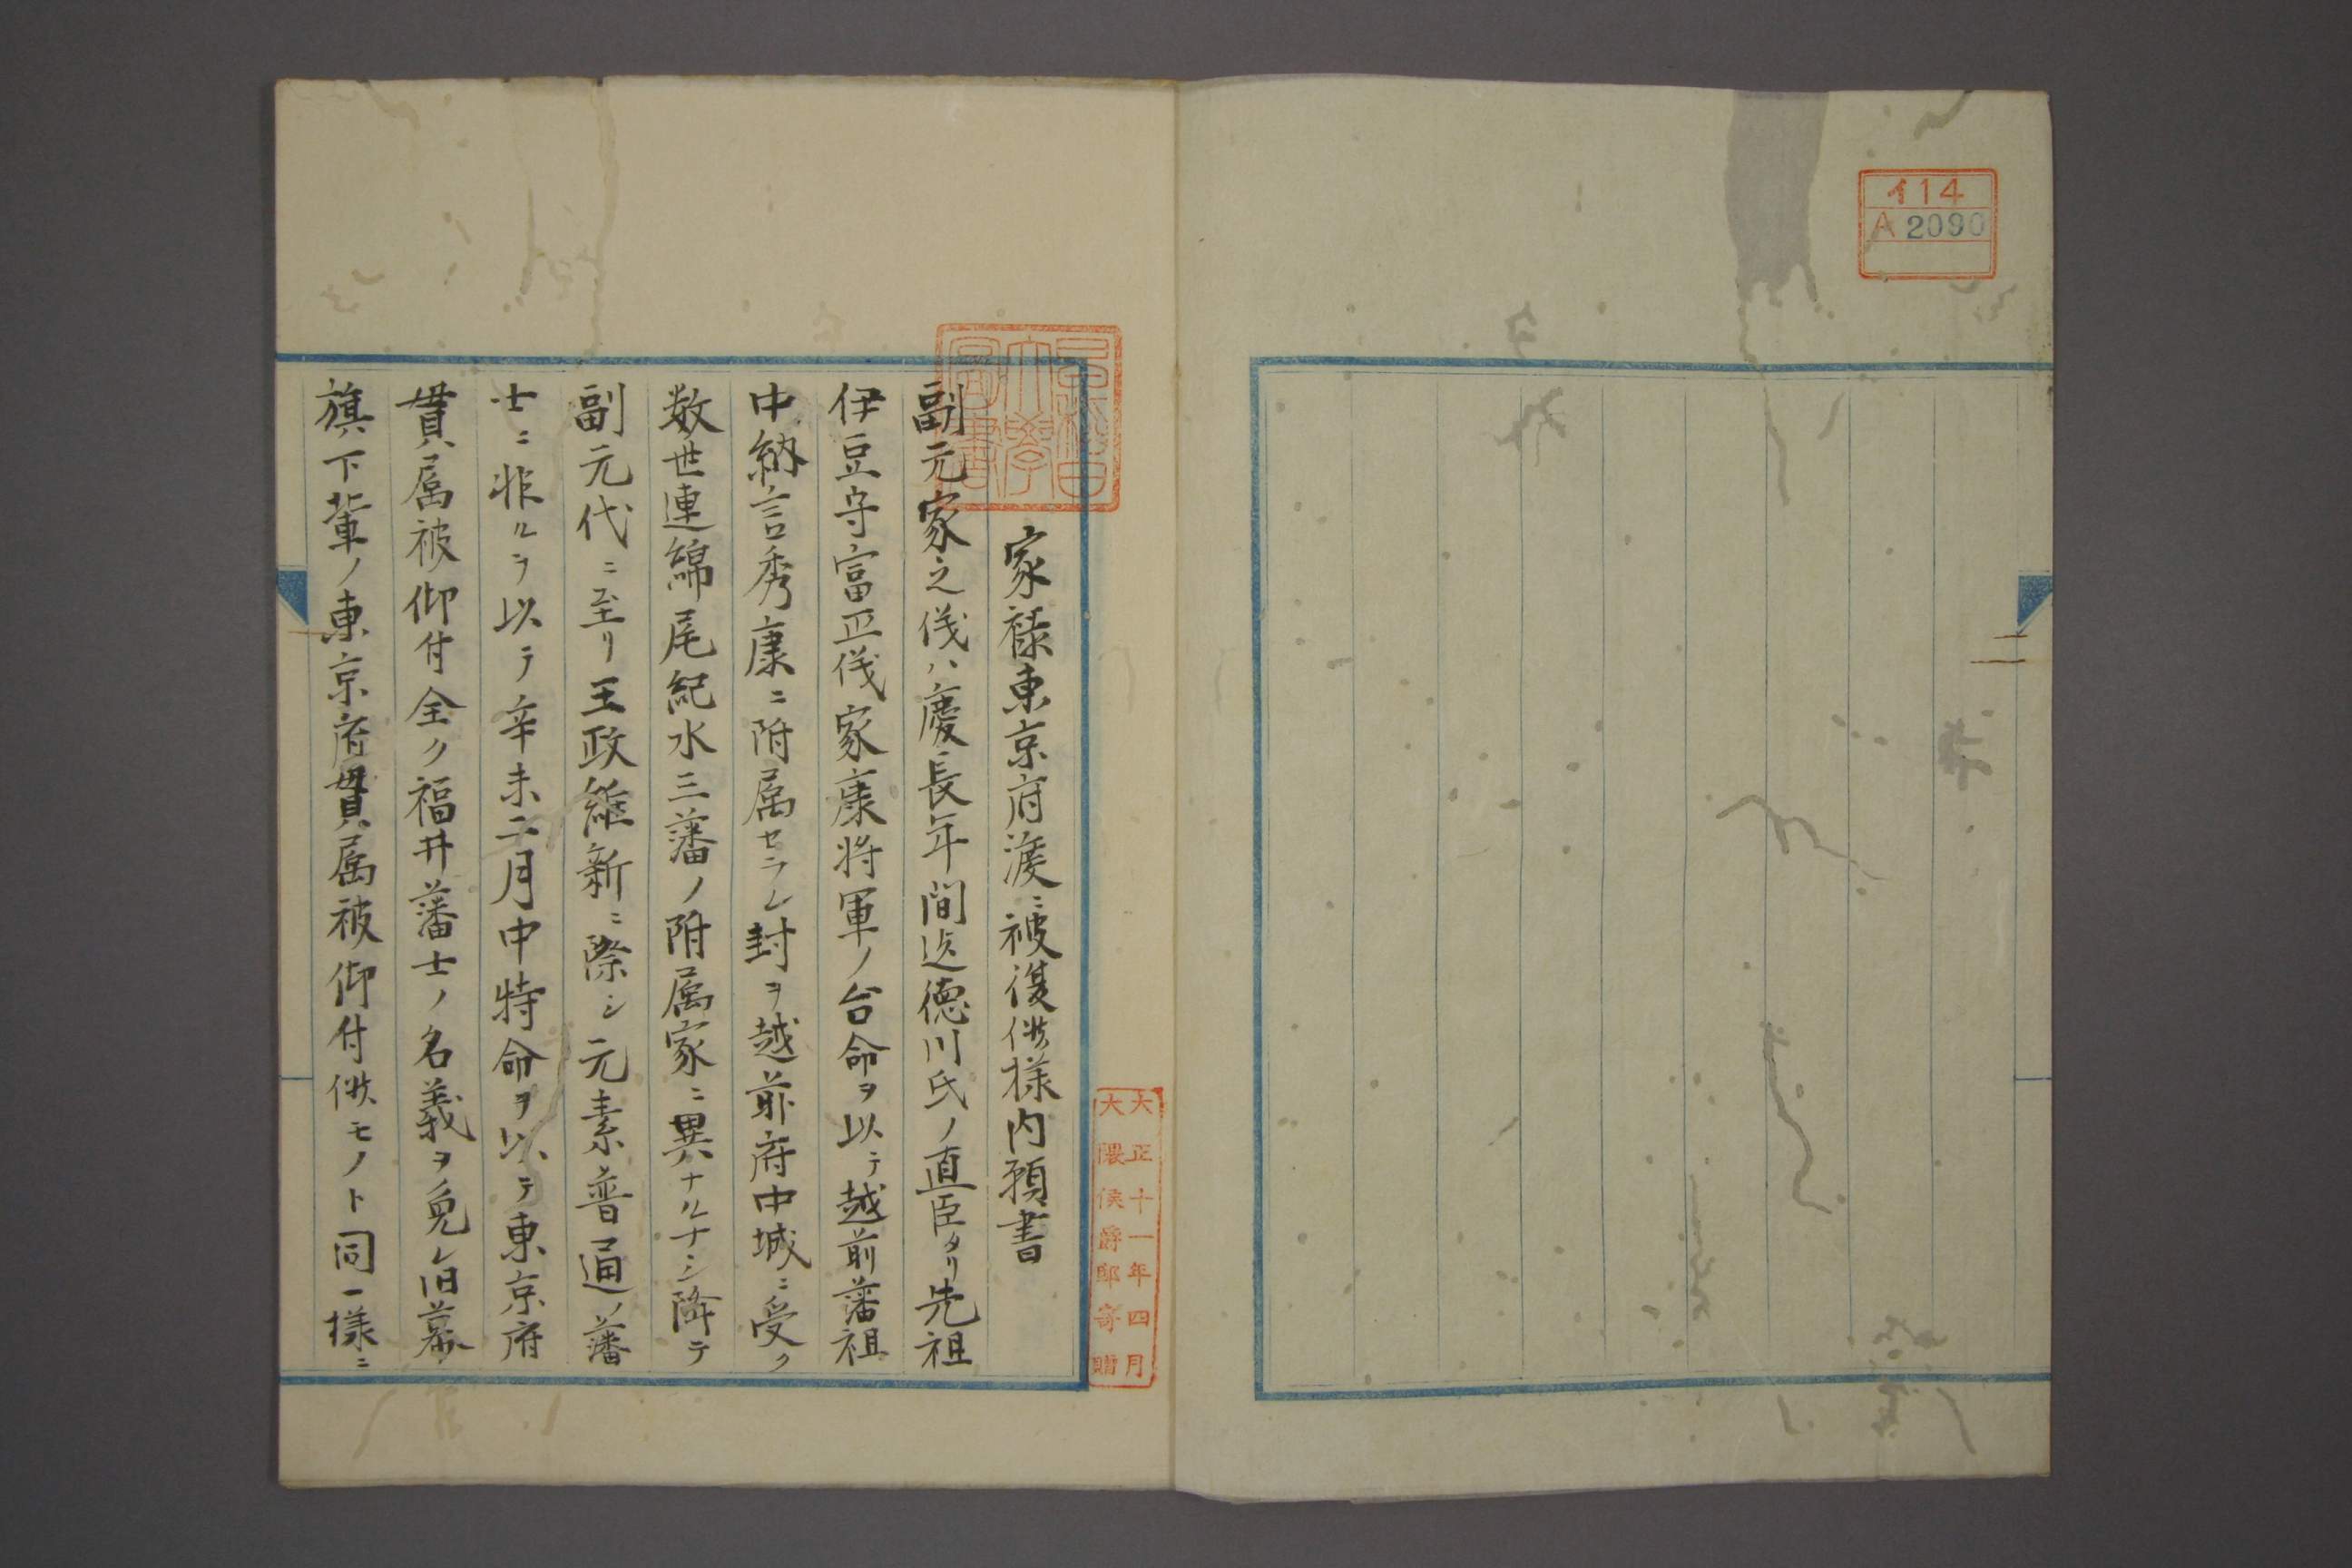 イ14
A 2090
早稲田
大學
圖書
大正十一年四月
大隈侯爵邸寄贈
家禄東京府渡ニ被復候様内願書
副元家之儀ハ慶長年間迄徳川氏ノ直臣タリ先祖
伊豆守富正儀家康将軍ノ台命ヲ以テ越前藩祖
中納言秀康ニ附属セラレ封ヲ越前府中城ニ受ク
数世連綿尾紀水三藩ノ附属家ニ異ナルナシ降テ
副元代ニ至リ王政維新ニ際シ元素普通ノ藩
士ニ非ルヲ以テ辛未二月中特命ヲ以テ東京府
貫属被仰付全ク福井藩士ノ名義ヲ免レ旧幕
旗下輩ノ東京府貫属被仰付候モノト同一様ニ